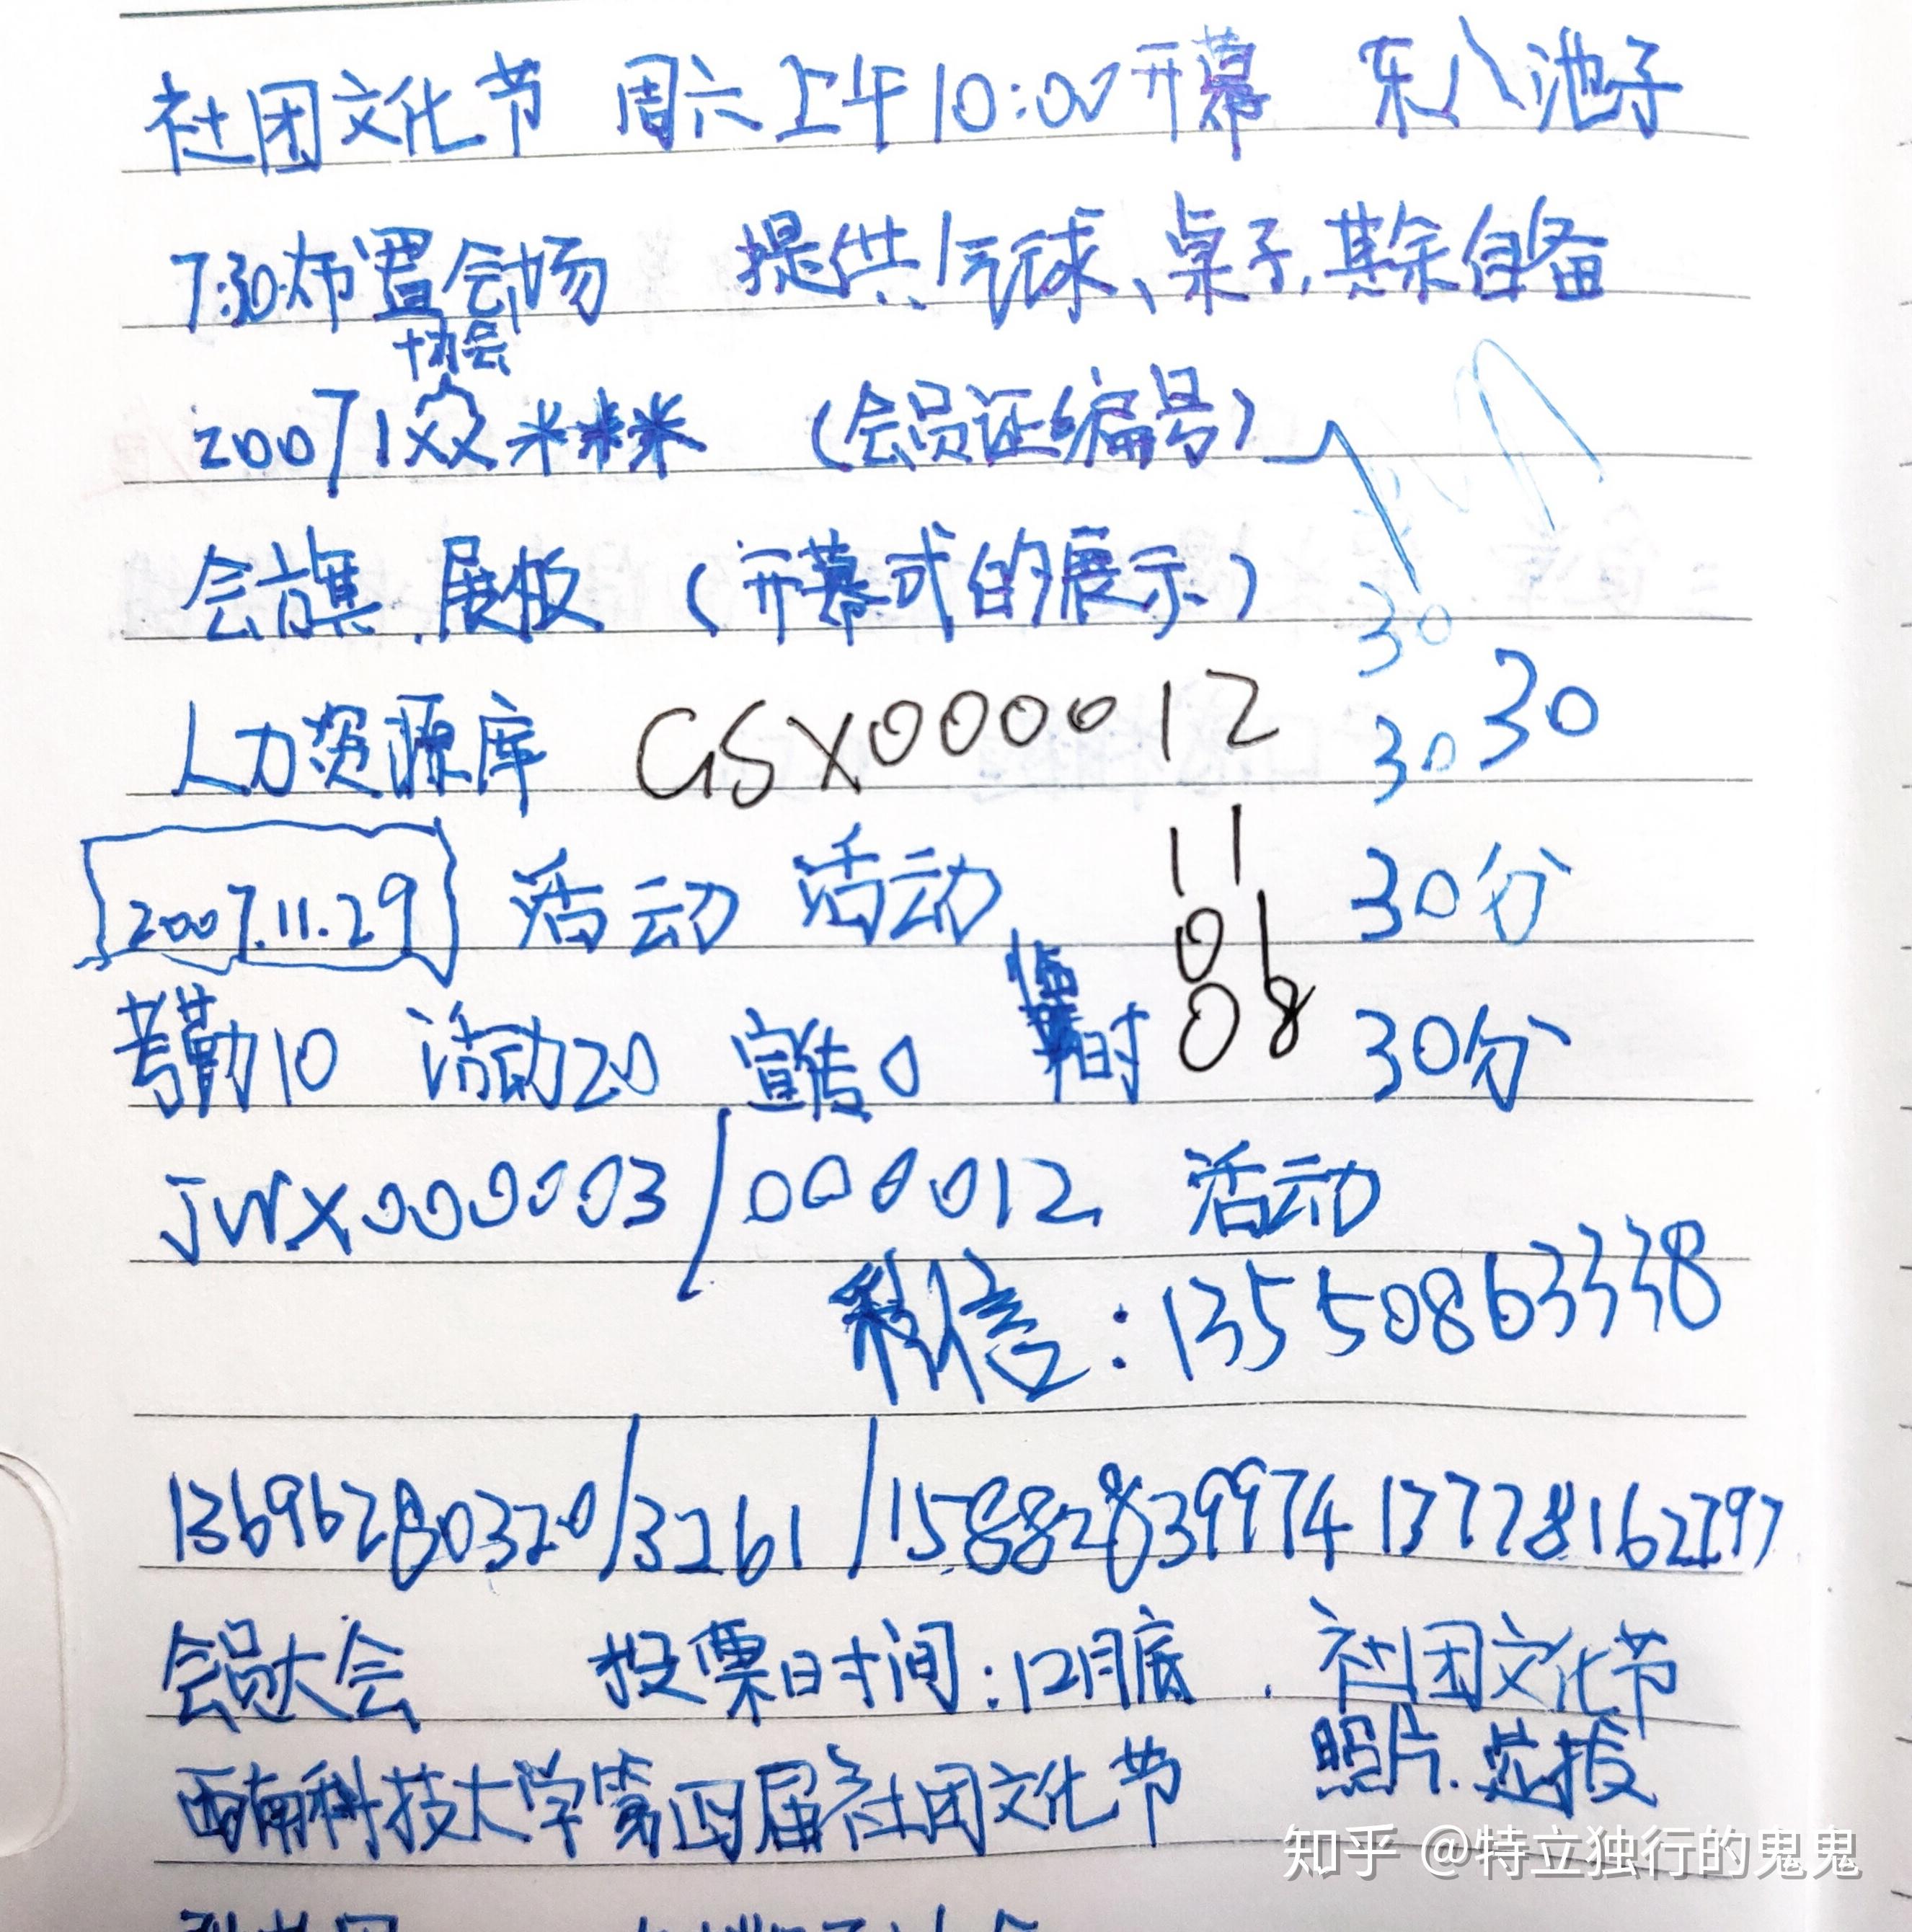 社团文化节 周六上午10:00开幕 东八池子
7:30布置会场 提供气球、桌子,其余自备
协会
20071 ××米米米米 (会员证编号)
会旗.展板 (开幕式的展示)
30
人力资源库 GSX000012 30 30
2007.11.29 活动 活动 11 30分
01
考勤10 活动20 宣传0 时 08 30分
JWX000003/000012 活动
科信:13550863338
13696280320/3261/15882839974 13778162797
会员大会 投票日时间:12月底. 社团文化节
照片.选拔
西南科技大学第四届社团文化节
知乎 @特立独行的鬼鬼